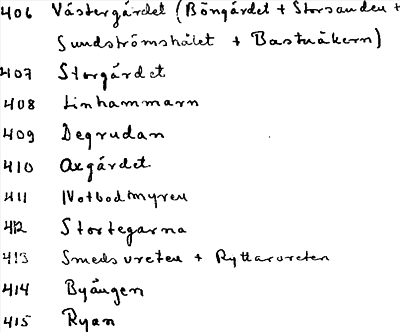 406 Västergärdet (Böngärdet + Storsanden +
Sundströmshålet + Bastuåkern)
407 Storgärdet
408 Linhammarn
409 Degrudan
410 Oxgärdet
411 Notbodmyren
412 Stortegarna
413 Smedsvreten + Ryttarvreten
414 Byängen
415 Ryan